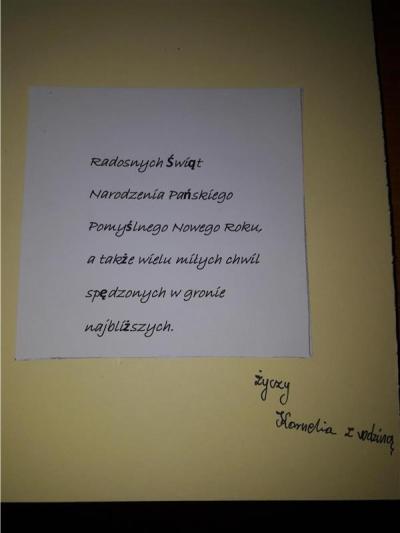 Radosnych Świąt
Narodzenia Pańskiego
Pomyślnego Nowego Roku,
a także wielu miłych chwil
spędzonych w gronie
najbliższych.
życzy
Kornelia z rodziną